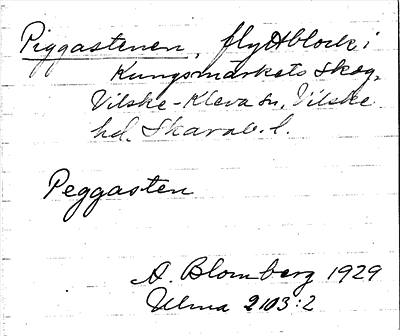 Piggastenen, flyttblock i
Kungsmärkets skog,
Vilske-Kleva sn, Vilske
hd. Skarab. l.
Peggasten
A. Blomberg 1929
Ulma 2103:2